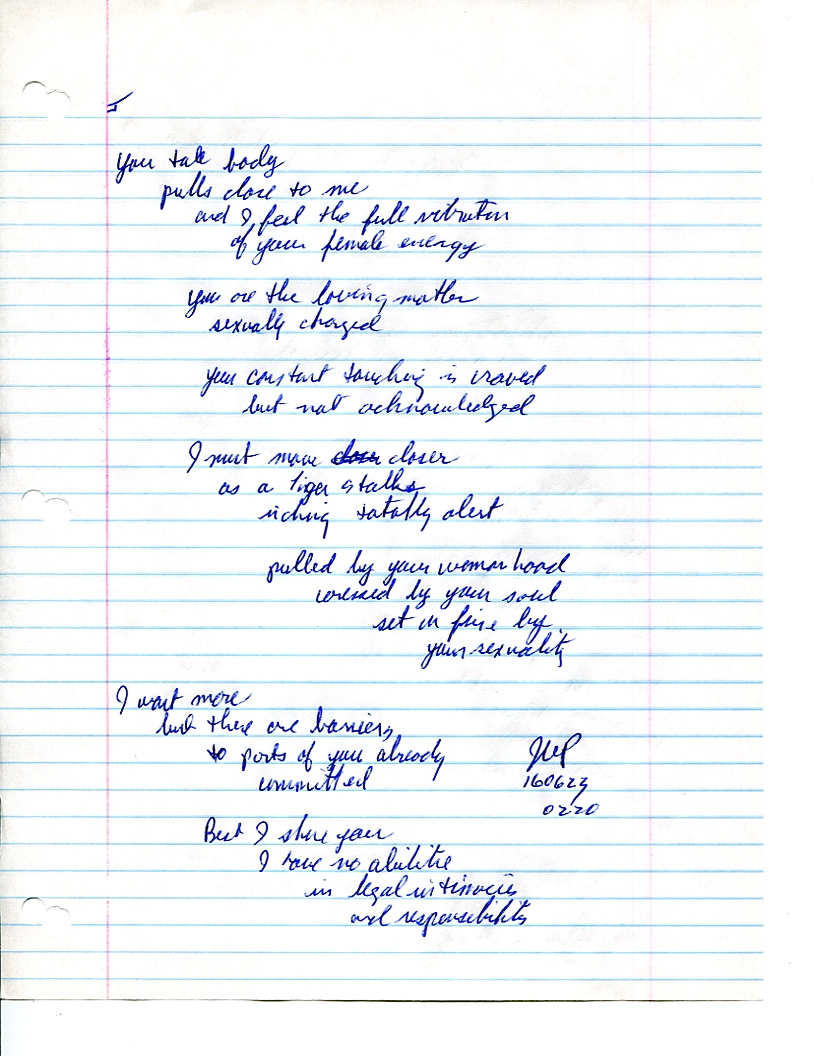 You tall body
pulls close to me
and I feel the full vibration
of your female energy
you are the loving matter
sexually charged
your constant touching is craved
but not acknowledged
I must move closer closer
as a tiger stalks
inching totally alert
pulled by your womanhood
by your soul
set on fire by
your sexuality
I want more
but there are barriers
to parts of you already
committed
JWP
160623
0220
Best I share your
I have no
in legal intimacies
and responsibility